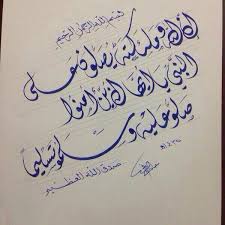 بسم الله الرحمن الرحيم
إن الله وملئكته يصلون على
النبي يا أيها الذين آمنوا
صلوا عليه وسلموا تسليما
صدق الله العظيم